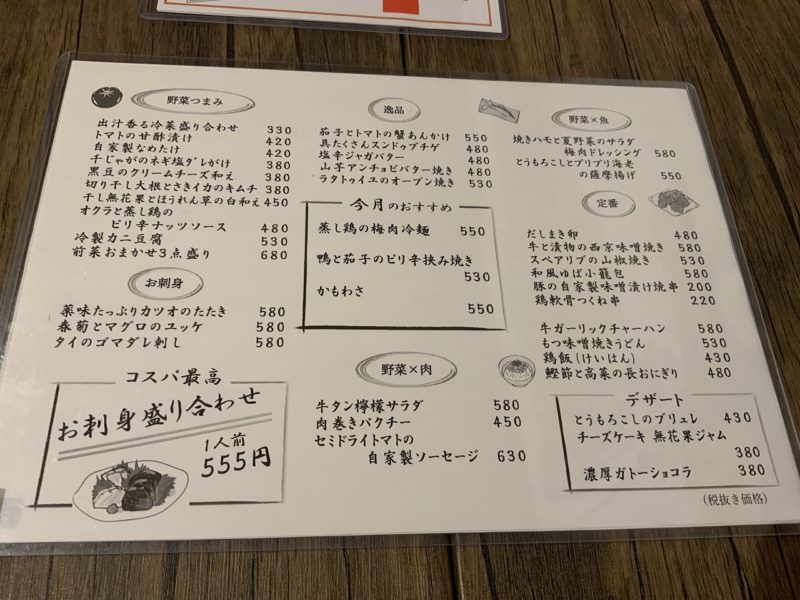 野菜つまみ
出汁香る冷菜盛り合わせ 330
トマトの甘酢漬け 420
自家製なめたけ 420
干じゃがのネギ塩ダレがけ 380
黒豆のクリームチーズ和え 380
切り干し大根とさきイカのキムチ 380
干し無花果とほうれん草の白和え 450
オクラと蒸し鶏の
ピリ辛ナッツソース 480
冷製カニ豆腐 530
前菜おまかせ3点盛り 680
お刺身
薬味たっぷりカツオのたたき 580
春菊とマグロのユッケ 580
タイのゴマダレ刺し 580
コスパ最高
お刺身盛り合わせ
1人前
555円
逸品
茄子とトマトの蟹あんかけ 550
具たくさんスンドゥブチゲ 480
塩辛ジャガバター 480
山芋アンチョビバター焼き 480
ラタトゥイユのオーブン焼き 530
今月のおすすめ
蒸し鶏の梅肉冷麺 550
鴨と茄子のピリ辛挟み焼き
530
かもわさ
550
野菜×肉
牛タン檸檬サラダ 580
肉巻きパクチー 450
セミドライトマトの
自家製ソーセージ 630
野菜×魚
焼きハモと夏野菜のサラダ
梅肉ドレッシング 580
とうもろこしとプリプリ海老
の薩摩揚げ 550
定番
だしまき卵 480
牛と漬物の西京味噌焼き 580
スペアリブの山椒焼き 530
和風ゆば小籠包 580
豚の自家製味噌漬け焼串 200
鶏軟骨つくね串 220
牛ガーリックチャーハン 580
もつ味噌焼きうどん 530
鶏飯(けいはん) 430
鰹節と高菜の長おにぎり 480
デザート
とうもろこしのブリュレ 430
チーズケーキ 無花果ジャム
380
濃厚ガトーショコラ 380
(税抜き価格)